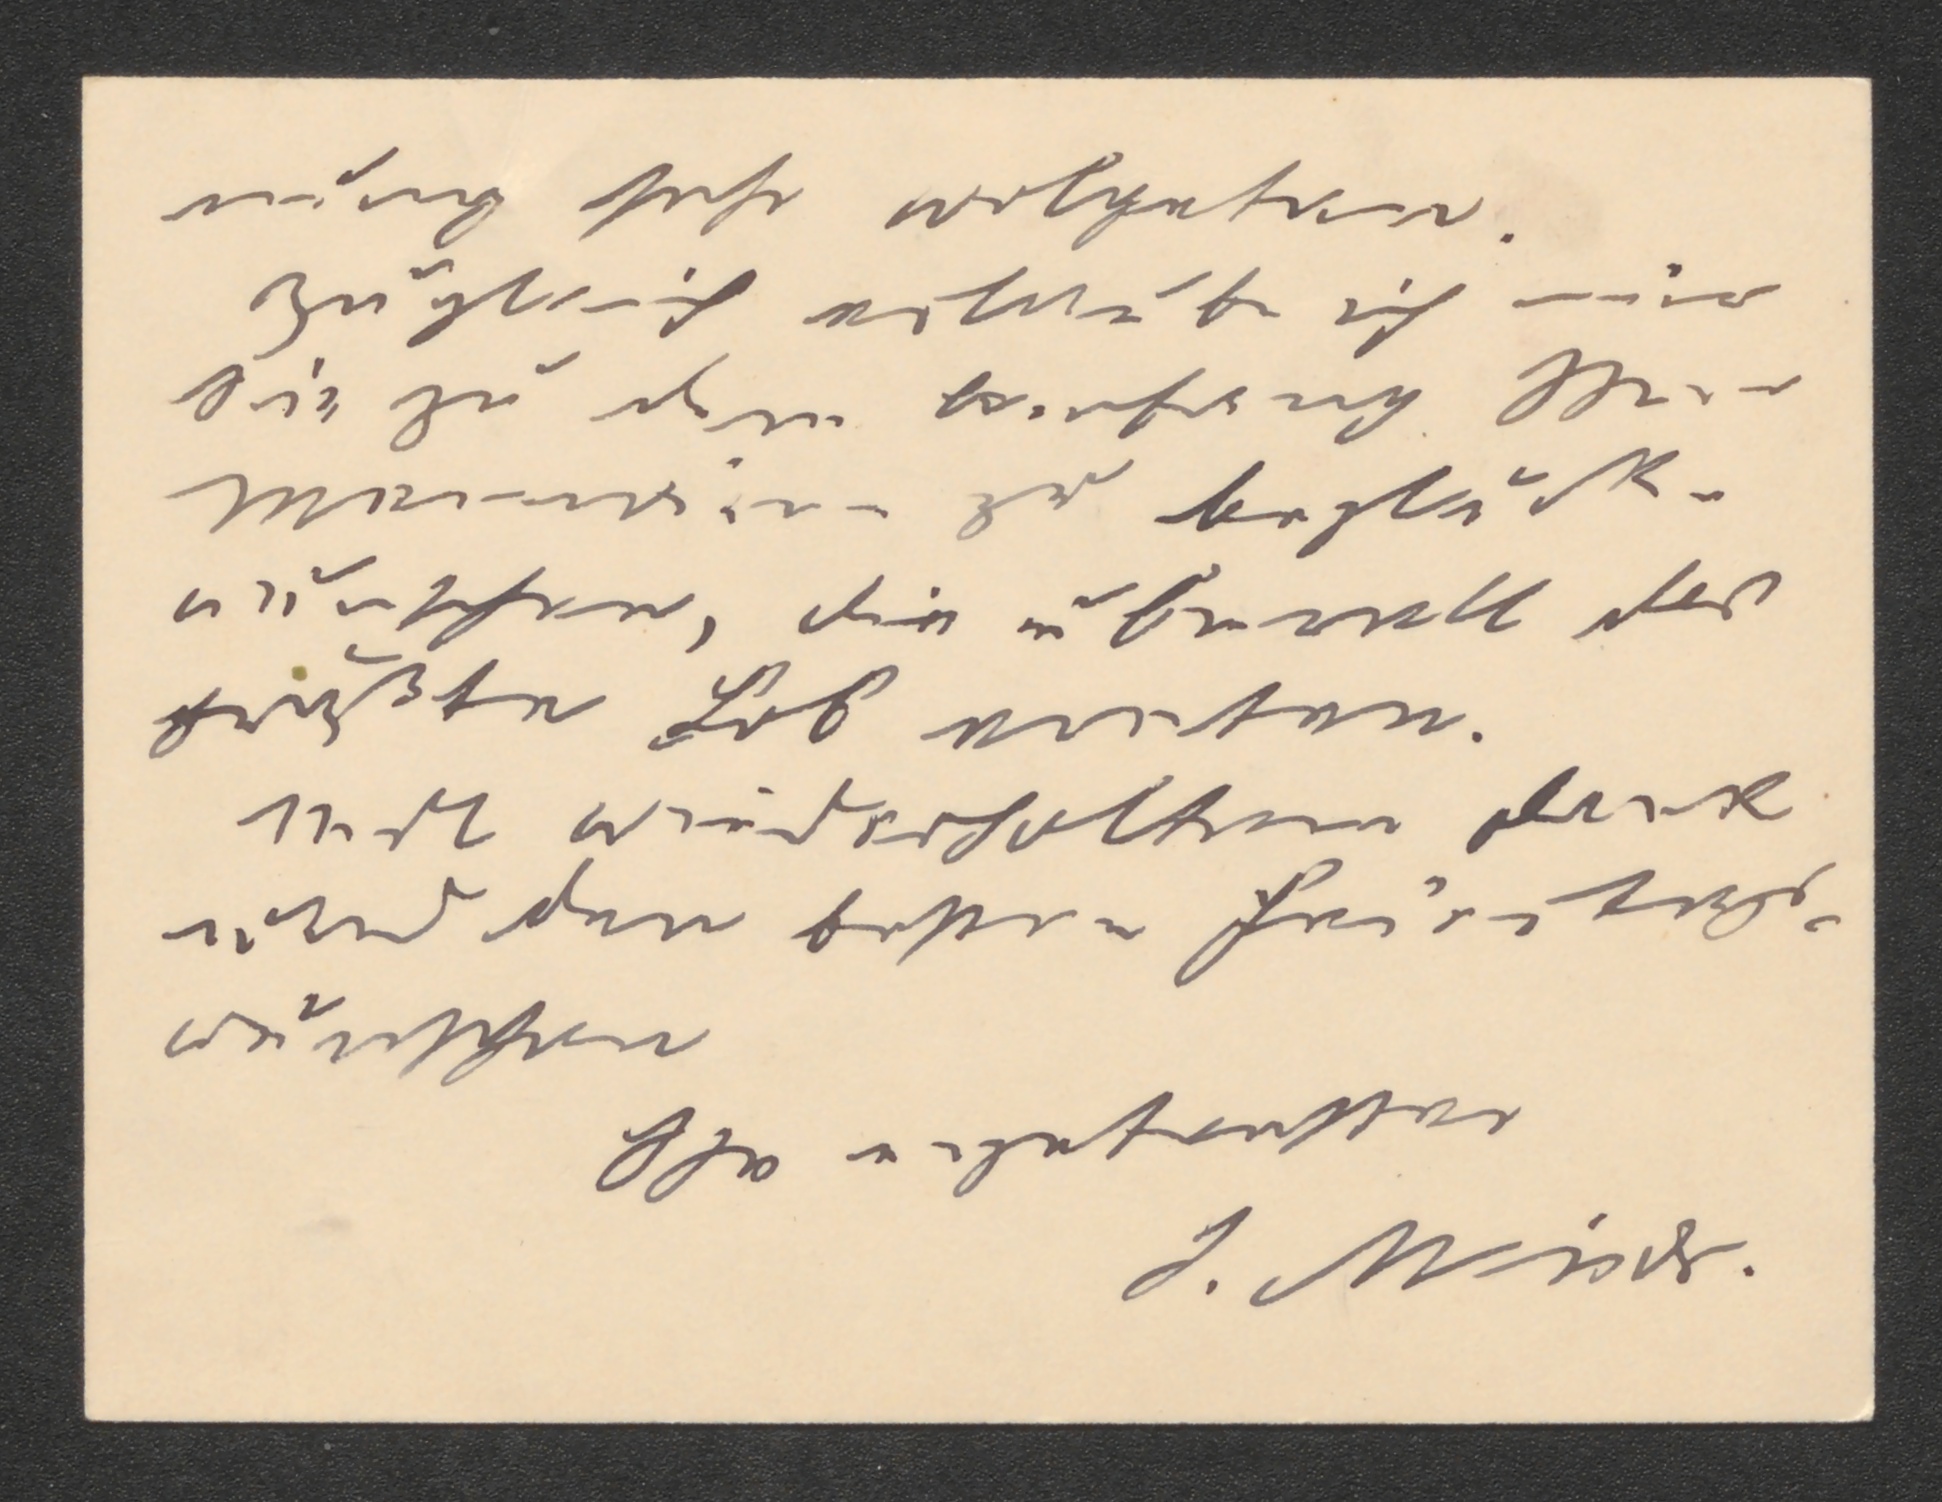 nung sehr wolgetan.
Zugleich erlaube ich mir
Sie zu dem Anfang Ihrer
Memoiren zu beglück-
wünschen, die überall das
größte Lob ernten.
Mit wiederholtem Dank
und den besten Feiertags-
wünschen
Ihr ergebenster
J.